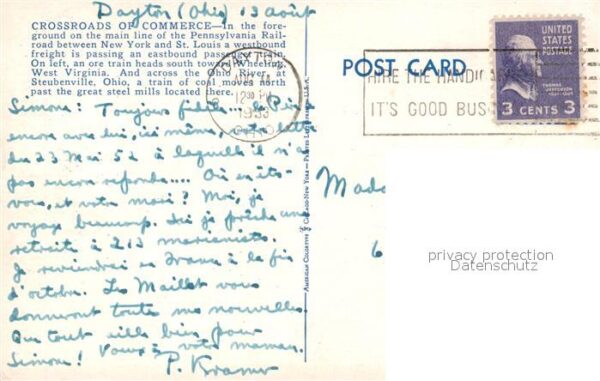 Dayton (Ohio) 13 août
CROSSROADS OF COMMERCE—In the fore-
ground on the main line of the Pennsylvania Rail-
road between New York and St. Louis a westbound
freight is passing an eastbound passenger train.
On left, an ore train heads south toward Wheeling,
West Virginia. And across the Ohio River, at
Steubenville, Ohio, a train of coal moves north
past the great steel mills located there.
Simone: Toujours fidèle... le Père
encore avec lui, ici même, votre lettre
du 23 Mai 52 à laquelle il n'a
pas encore répondu.... Où en êtes-
vous, et votre mari? Moi, je
voyage beaucoup. Ici je prêche une
retraite à 213 marianistes.
Je reviendrai en France à la fin
d'octobre. Les Maillet vous
donneront toutes mes nouvelles.
Que tout aille bien pour
Simone! Voeux à votre maman.
P. Kramer
DAYTON
12 30 PM
1953
OHIO
POST CARD
HIRE THE HANDICAPPED
IT'S GOOD BUS
UNITED
STATES
POSTAGE
THOMAS
JEFFERSON
3 CENTS 3
Mada
6
privacy protection
Datenschutz